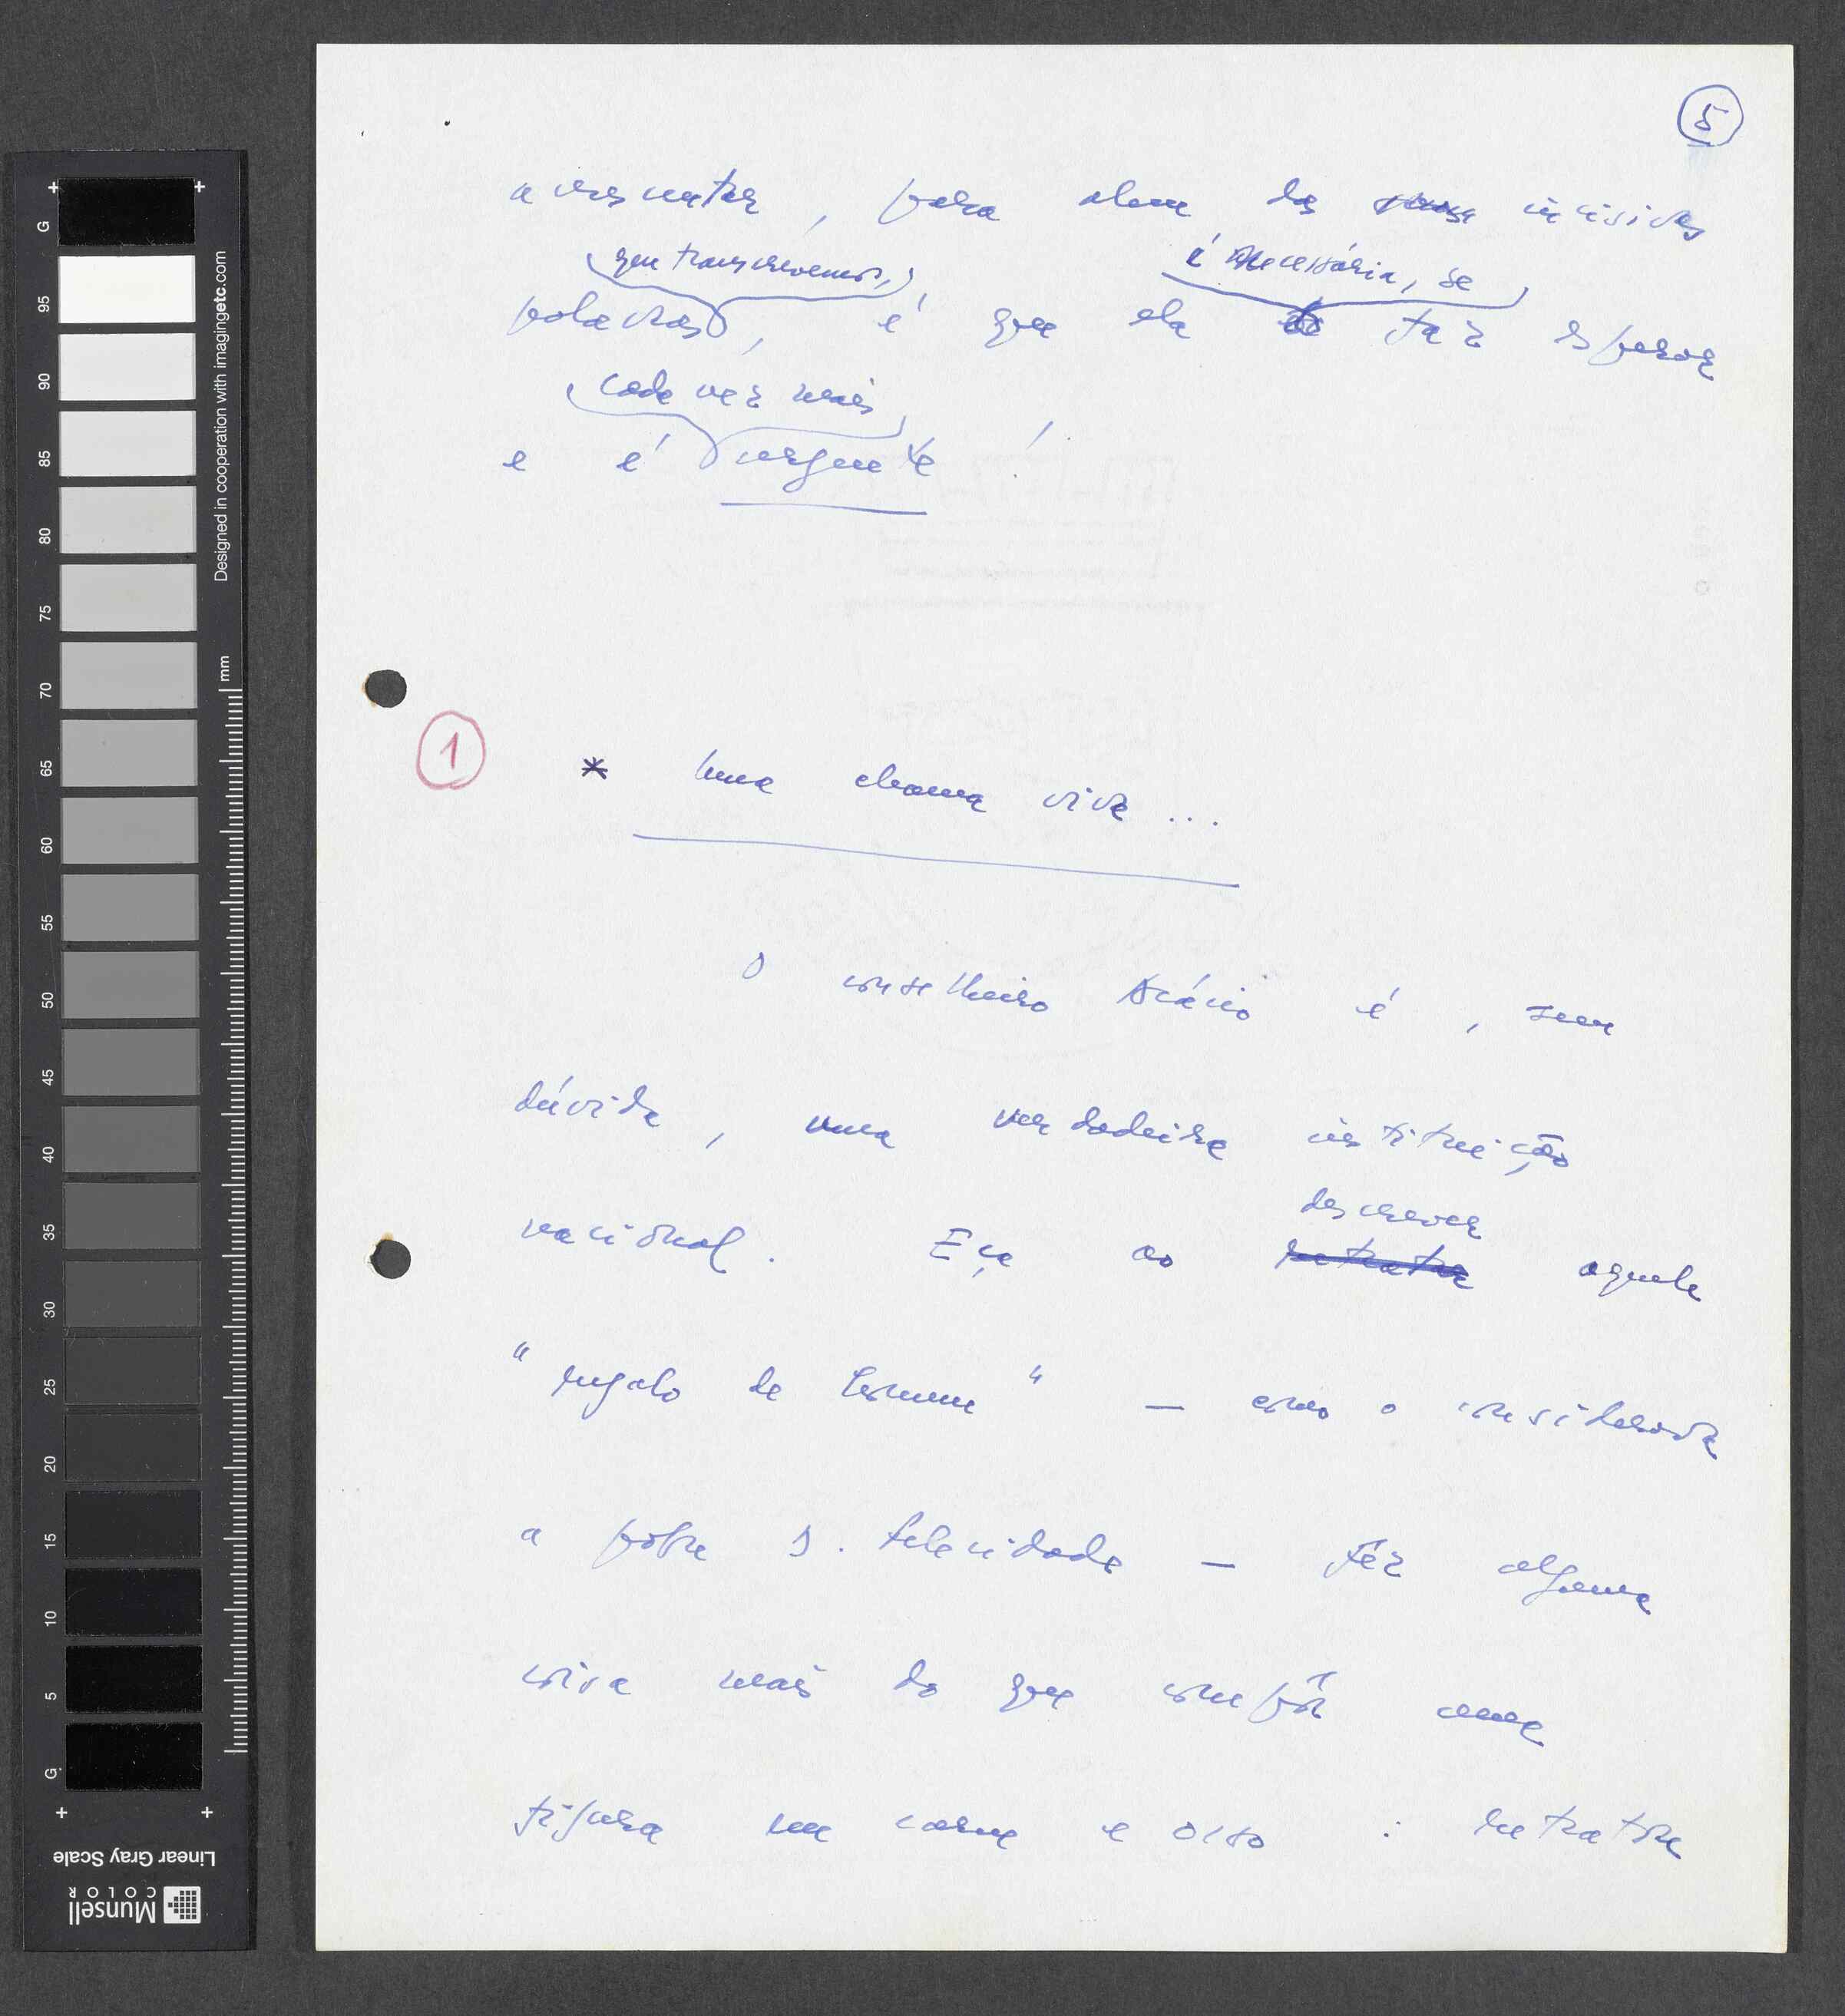 5
acrescentar, para alem das incisivas
que transcrevemos,
é necessária, se
palavras, é que ela faz esperar
cada vez mais
e é urgente!
1
* Uma chama viva ...
O conselheiro Acácio é, sem
dúvida, uma verdadeira instituição
descrever
nacional. Eça ao retratar aquele
"regalo de homem" — como o considerava
a pobre D. Felicidade — fez alguma
coisa mais do que compôr uma
figura em carne e osso: retratou
G
95
90
85
80
75
70
65
60
55
50
45
40
35
30
25
20
15
10
5
G
Designed in cooperation with imagingetc.com
mm
Linear Gray Scale
Munsell
COLOR